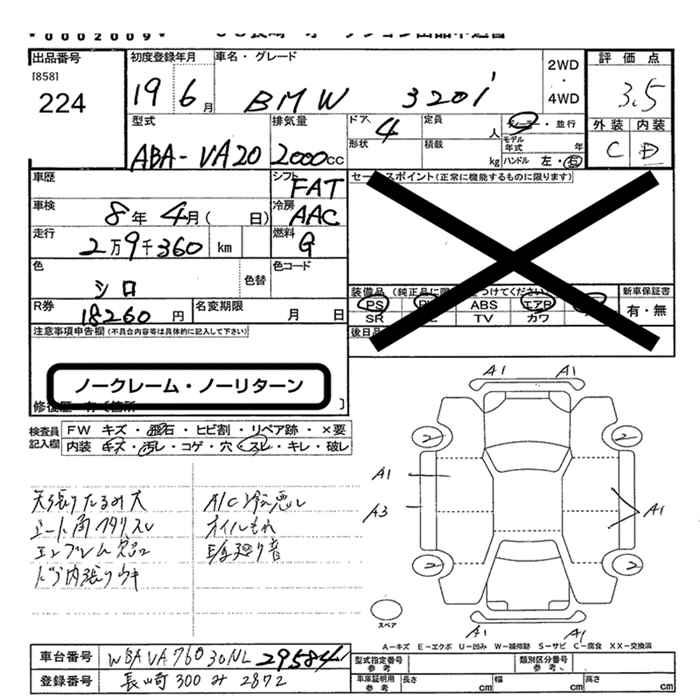 出品番号 初度登録年月 車名・グレード 2WD・4WD 評価点
[858]
224 19 6月 BMW 320i 3.5
型式 排気量 ドア 定員 人 ディーラー・並行 外装 内装
ABA-VA20 2000cc 4 形状 積載 kg モデル年式 年 ハンドル 左・右 C D
車歴 シフト FAT セールスポイント(正常に機能するものに限ります)
車検 8年 4月( 日) 冷房 AAC
走行 2万9千360 km 燃料 G
色 シロ 色替 色コード
装備品 PS ABS エアB 新車保証書
SR TV カワ 有・無
R券 18260円 名変期限 月 日
後日品
注意事項申告欄(不具合内容等は具体的に記入して下さい)
ノークレーム・ノーリターン
修復歴
検査員記入欄 FW キズ・飛石・ヒビ割・リペア跡・×要
内装 キズ・汚レ・コゲ・穴・スレ・キレ・破レ
A1 A1
2 2
A1
A3 A1
2 2
天張りたるみ大 A/C冷え悪し
シート角スリスレ オイルもれ
エンブレム欠品
ドア内張りウキ
スペア
A1 A1
A-キズ E-エクボ U-凹み W-補修跡 S-サビ C-腐食 XX-交換済
車台番号 WBAVA76030NL29584 型式指定番号 参考 類別区分番号 参考
登録番号 長崎 300 み 2872 車庫証明用 参考 長さ cm 幅 cm 高さ cm